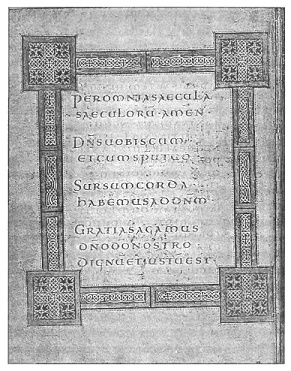 PEROMNIASAECULA
SAECULORŪ·AMEN·
DN̄SUOBISCUM
ETCUMSPŪTUO
SURSUMCORDA·
HABEMUSADDN̄M
GRATIASAGAMUS
DN̄ODŌNOSTRO
DIGNŪETJUSTŪEST·